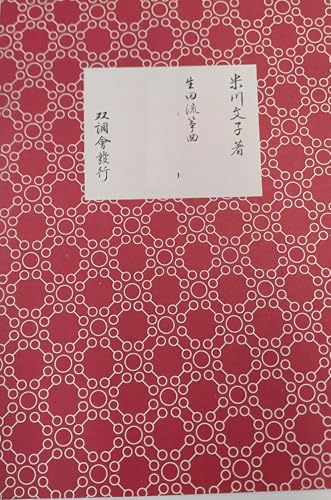 米川文子著
生田流箏曲
双調會發行